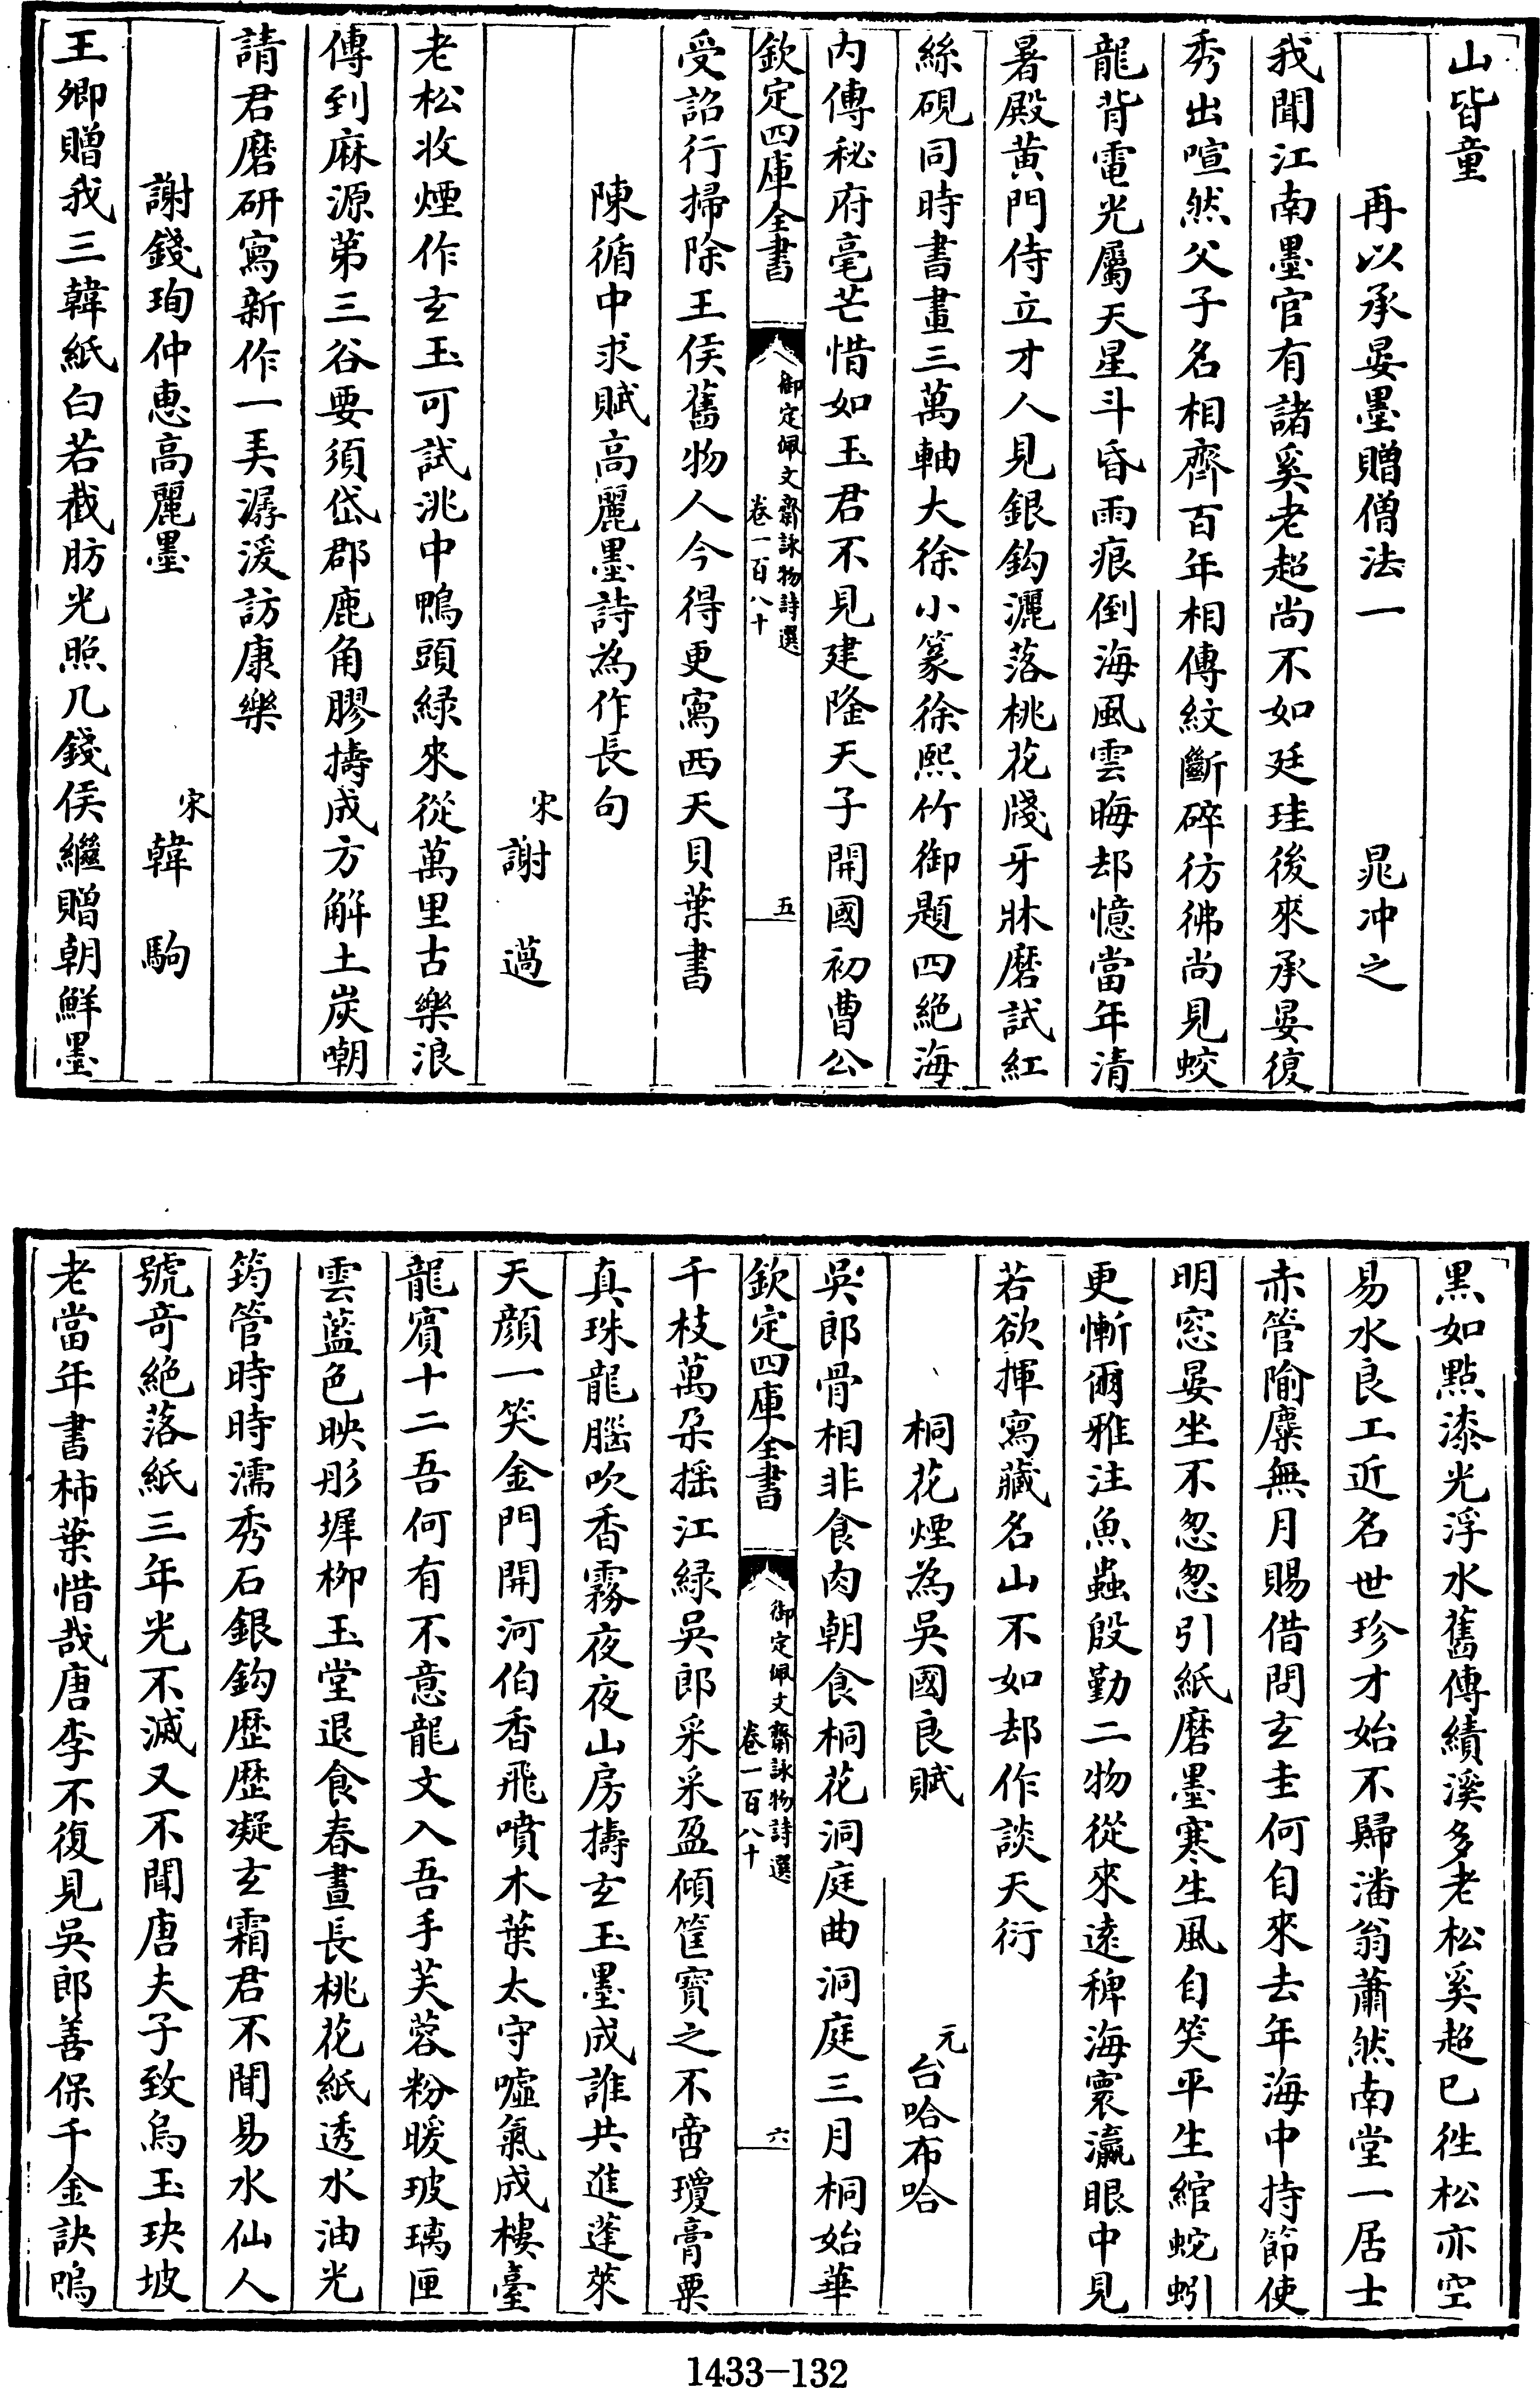 山皆童
再以承晏墨贈僧法一
晁冲之
我聞江南墨官有諸奚老超尚不如廷珪後來承晏復
秀出喧然父子名相齊百年相傳紋斷碎彷彿尚見蛟
龍背電光屬天星斗昏雨痕倒海風雲晦却憶當年清
暑殿黄門侍立才人見銀鈎灑落桃花牋牙牀磨試紅
絲硯同時書畫三萬軸大徐小篆徐熙竹御題四絶海
内傳秘府毫芒惜如玉君不見建隆天子開國初曹公
欽定四庫全書
御定佩文齋詠物詩選
卷一百八十
五
受詔行掃除王侯舊物人今得更寫西天貝葉書
陳循中求賦高麗墨詩為作長句
宋
謝邁
老松收煙作玄玉可試洮中鴨頭緑來從萬里古樂浪
傳到麻源第三谷要須岱郡鹿角膠擣成方解土炭嘲
請君磨研寫新作一美潺湲訪康樂
謝錢珣仲惠高麗墨
宋
韓駒
王卿贈我三韓紙白若截肪光照几錢侯繼贈朝鮮墨
黒如點漆光浮水舊傳績溪多老松奚超已徃松亦空
易水良工近名世珍才始不歸潘翁蕭然南堂一居士
赤管隃麋無月賜借問玄圭何自來去年海中持節使
明窓晏坐不怱怱引紙磨墨寒生風自笑平生綰蛇蚓
更慚爾雅注魚蟲殷勤二物從來遠稗海寰瀛眼中見
若欲揮寫藏名山不如却作談天衍
桐花煙為吳國良賦
元
台哈布哈
吳郎骨相非食肉朝食桐花洞庭曲洞庭三月桐始華
欽定四庫全書
御定佩文齋詠物詩選
卷一百八十
六
千枝萬朶揺江緑吳郎采采盈傾筐寳之不啻瓊膏粟
真珠龍腦吹香霧夜夜山房擣玄玉墨成誰共進蓬萊
天顔一笑金門開河伯香飛噴木葉太守噓氣成樓臺
龍賓十二吾何有不意龍文入吾手芙蓉粉暖玻璃匣
雲藍色映彤墀柳玉堂退食春晝長桃花紙透水油光
筠管時時濡秀石銀鈎歴歴凝玄霜君不聞易水仙人
號奇絶落紙三年光不滅又不聞唐夫子致烏玉玦坡
老當年書柿葉惜哉唐李不復見吳郎善保千金訣嗚
1433-132